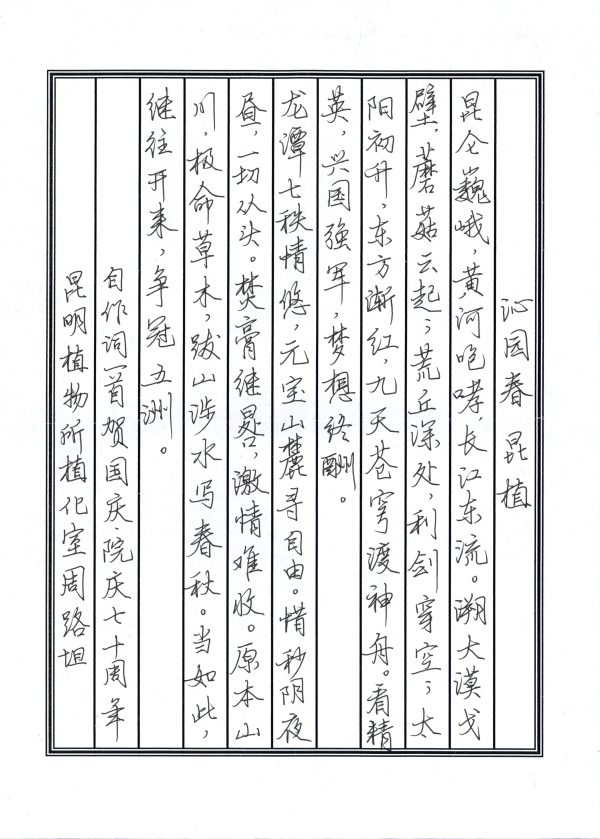 沁园春 昆植
昆仑巍峨，黄河咆哮，长江东流。溯大漠戈
壁，蘑菇云起；荒丘深处，利剑穿空；太
阳初升，东方渐红，九天苍穹渡神舟。看精
英，兴国强军，梦想终酬。
龙潭七秩情悠，元宝山麓寻自由。惜秒阴夜
昼，一切从头。焚膏继晷，激情难收。原本山
川，极命草木，跋山涉水写春秋。当如此，
继往开来，争冠五洲。
自作词一首贺国庆、院庆七十周年
昆明植物所植化室周路坦